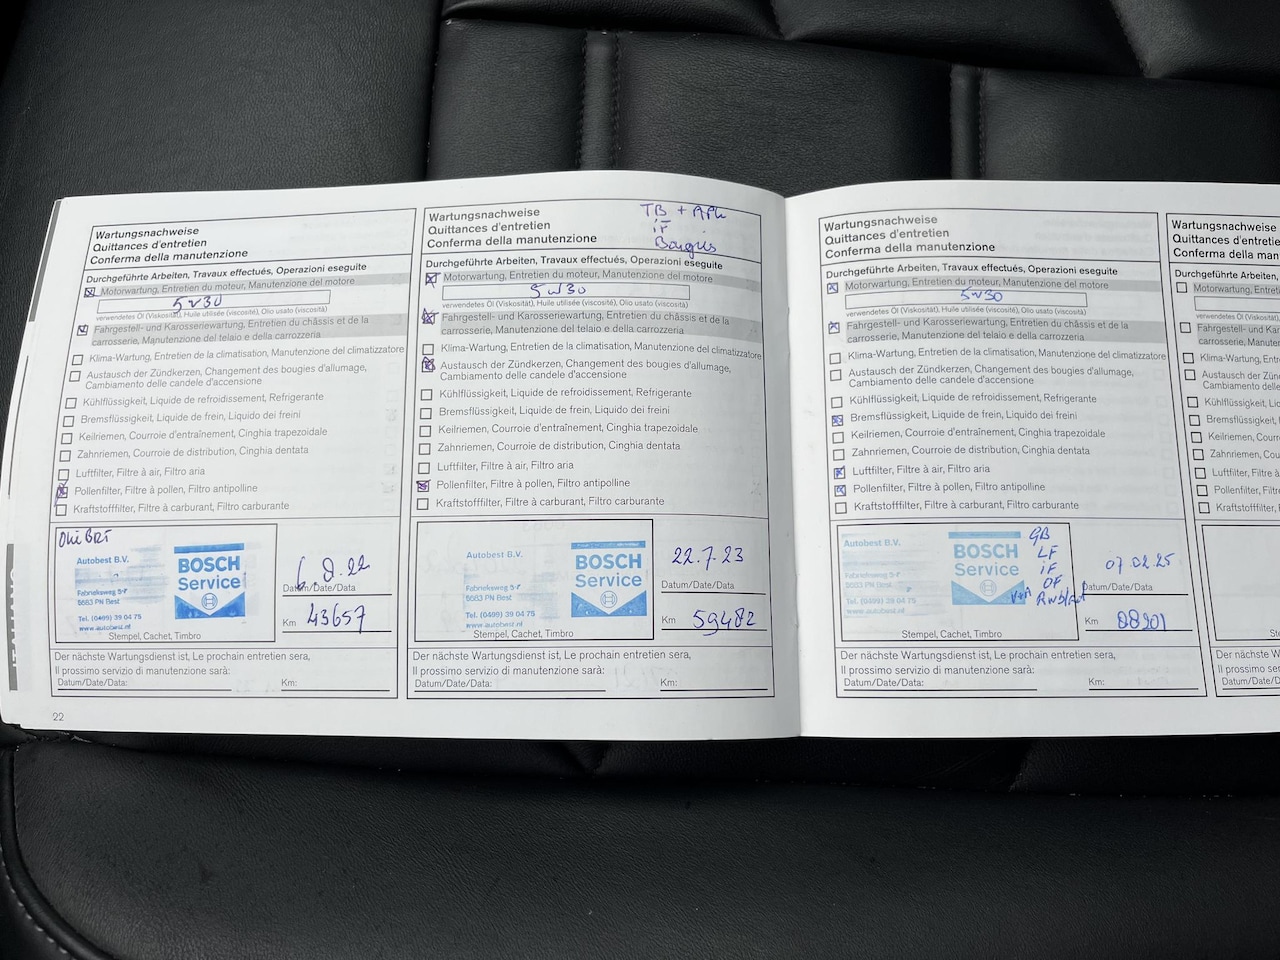 Wartungsnachweise
Quittances d'entretien
Conferma della manutenzione
Durchgeführte Arbeiten, Travaux effectués, Operazioni eseguite
Motorwartung, Entretien du moteur, Manutenzione del motore
5w30
verwendetes Öl (Viskosität), Huile utilisée (viscosité), Olio usato (viscosità)
Fahrgestell- und Karosseriewartung, Entretien du châssis et de la
carrosserie, Manutenzione del telaio e della carrozzeria
Klima-Wartung, Entretien de la climatisation, Manutenzione del climatizzatore
Austausch der Zündkerzen, Changement des bougies d'allumage,
Cambiamento delle candele d'accensione
Kühlflüssigkeit, Liquide de refroidissement, Refrigerante
Bremsflüssigkeit, Liquide de frein, Liquido dei freini
Keilriemen, Courroie d'entraînement, Cinghia trapezoidale
Zahnriemen, Courroie de distribution, Cinghia dentata
Luftfilter, Filtre à air, Filtro aria
Pollenfilter, Filtre à pollen, Filtro antipolline
Kraftstofffilter, Filtre à carburant, Filtro carburante
Autobest B.V.
Fabrieksweg
5683 PN Best
Tel. (0499) 39 04 75
www.autobest.nl
BOSCH
Service
Stempel, Cachet, Timbro
Datum/Date/Data
Km 43657
Der nächste Wartungsdienst ist, Le prochain entretien sera,
Il prossimo servizio di manutenzione sarà:
Datum/Date/Data:
Km:
22
Wartungsnachweise
Quittances d'entretien
Conferma della manutenzione
TB +
iF
Bougies
Durchgeführte Arbeiten, Travaux effectués, Operazioni eseguite
Motorwartung, Entretien du moteur, Manutenzione del motore
5w30
verwendetes Öl (Viskosität), Huile utilisée (viscosité), Olio usato (viscosità)
Fahrgestell- und Karosseriewartung, Entretien du châssis et de la
carrosserie, Manutenzione del telaio e della carrozzeria
Klima-Wartung, Entretien de la climatisation, Manutenzione del climatizzatore
Austausch der Zündkerzen, Changement des bougies d'allumage,
Cambiamento delle candele d'accensione
Kühlflüssigkeit, Liquide de refroidissement, Refrigerante
Bremsflüssigkeit, Liquide de frein, Liquido dei freini
Keilriemen, Courroie d'entraînement, Cinghia trapezoidale
Zahnriemen, Courroie de distribution, Cinghia dentata
Luftfilter, Filtre à air, Filtro aria
Pollenfilter, Filtre à pollen, Filtro antipolline
Kraftstofffilter, Filtre à carburant, Filtro carburante
Autobest B.V.
Fabrieksweg
5683 PN Best
Tel. (0499) 39 04 75
www.autobest.nl
BOSCH
Service
Stempel, Cachet, Timbro
22.7.23
Datum/Date/Data
Km 59482
Der nächste Wartungsdienst ist, Le prochain entretien sera,
Il prossimo servizio di manutenzione sarà:
Datum/Date/Data:
Km:
Wartungsnachweise
Quittances d'entretien
Conferma della manutenzione
Durchgeführte Arbeiten, Travaux effectués, Operazioni eseguite
Motorwartung, Entretien du moteur, Manutenzione del motore
5w30
verwendetes Öl (Viskosität), Huile utilisée (viscosité), Olio usato (viscosità)
Fahrgestell- und Karosseriewartung, Entretien du châssis et de la
carrosserie, Manutenzione del telaio e della carrozzeria
Klima-Wartung, Entretien de la climatisation, Manutenzione del climatizzatore
Austausch der Zündkerzen, Changement des bougies d'allumage,
Cambiamento delle candele d'accensione
Kühlflüssigkeit, Liquide de refroidissement, Refrigerante
Bremsflüssigkeit, Liquide de frein, Liquido dei freini
Keilriemen, Courroie d'entraînement, Cinghia trapezoidale
Zahnriemen, Courroie de distribution, Cinghia dentata
Luftfilter, Filtre à air, Filtro aria
Pollenfilter, Filtre à pollen, Filtro antipolline
Kraftstofffilter, Filtre à carburant, Filtro carburante
Autobest B.V.
5683 PN Best
Tel. (0499) 39 04 75
www.autobest.nl
BOSCH
Service
GB
LF
iF
OF
Stempel, Cachet, Timbro
07.02.25
Datum/Date/Data
Km
Der nächste Wartungsdienst ist, Le prochain entretien sera,
Il prossimo servizio di manutenzione sarà:
Datum/Date/Data:
Km:
Quittances d'entretien
Conferma della
Durchgeführte Arbeiten,
Motorwartung,
verwendetes Öl
Fahrgestell- und
carrosserie,
Klima-Wartung,
Austausch der
Cambiamento
Kühlflüssigkeit,
Bremsflüssigkeit,
Keilriemen,
Zahnriemen,
Luftfilter, Filtre
Pollenfilter,
Kraftstofffilter,
Der nächste
Il prossimo
Datum/Date/Data: